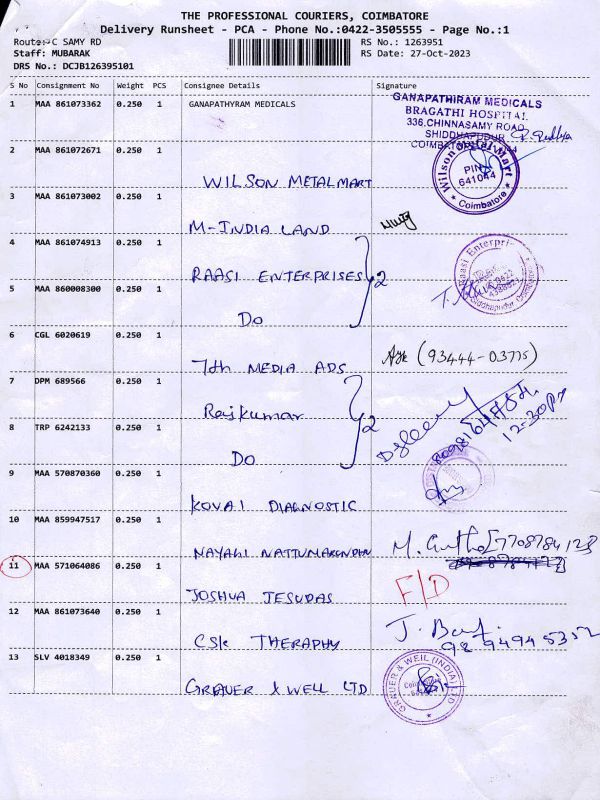 THE PROFESSIONAL COURIERS, COIMBATORE
Delivery Runsheet - PCA - Phone No.:0422-3505555 - Page No.:1
Route: C SAMY RD
Staff: MUBARAK
DRS No.: DCJB126395101
RS No.: 1263951
RS Date: 27-Oct-2023
S No Consignment No Weight PCS Consignee Details Signature
1 MAA 861073362 0.250 1 GANAPATHYRAM MEDICALS
GANAPATHIRAM MEDICALS
BRAGATHI HOSPITAL
336,CHINNASAMY ROAD
SHIDDHAPUDUR
2 MAA 861072671 0.250 1 WILSON METALMART
Wilson Metal Mart
PIN
641044
Coimbatore
3 MAA 861073002 0.250 1 M-INDIA LAND
4 MAA 861074913 0.250 1 RAASI ENTERPRISES 2
Raasi Enterpri
5 MAA 860008300 0.250 1 Do
6 CGL 6020619 0.250 1 7dh MEDIA ADS (93444-03775)
7 DPM 689566 0.250 1 Rajkumar 2
12-30PM
8 TRP 6242133 0.250 1 Do
9 MAA 570870360 0.250 1 KOVAI DIAGNOSTIC
10 MAA 859947517 0.250 1 NAYAGI
11 MAA 571064086 0.250 1 JOSHUA JESUDAS F/D
12 MAA 861073640 0.250 1 CSK THERAPHY
13 SLV 4018349 0.250 1 GRAUER & WELL LTD
GRAUER & WEIL (INDIA) LTD